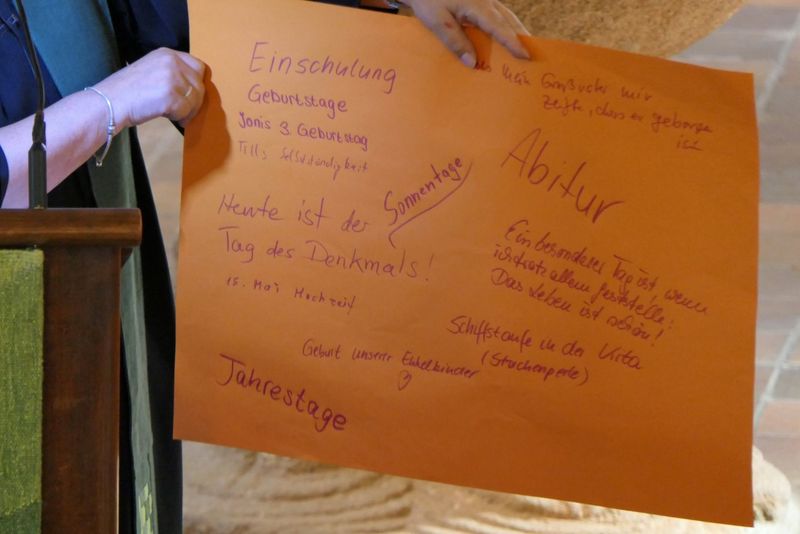 Einschulung
Geburtstage
Jonis 3. Geburtstag
Tills Selbständigkeit
Sonnentage
Heute ist der
Tag des Denkmals!
15. Mai Hochzeit
Geburt unserer Enkelkinder
Jahrestage
mein Großvater mir
zeigte, dass er geborgen
ist
Abitur
Ein besonderer Tag ist, wenn
ich trotz allem feststelle:
Das Leben ist schön!
Schiffstaufe in der Kita